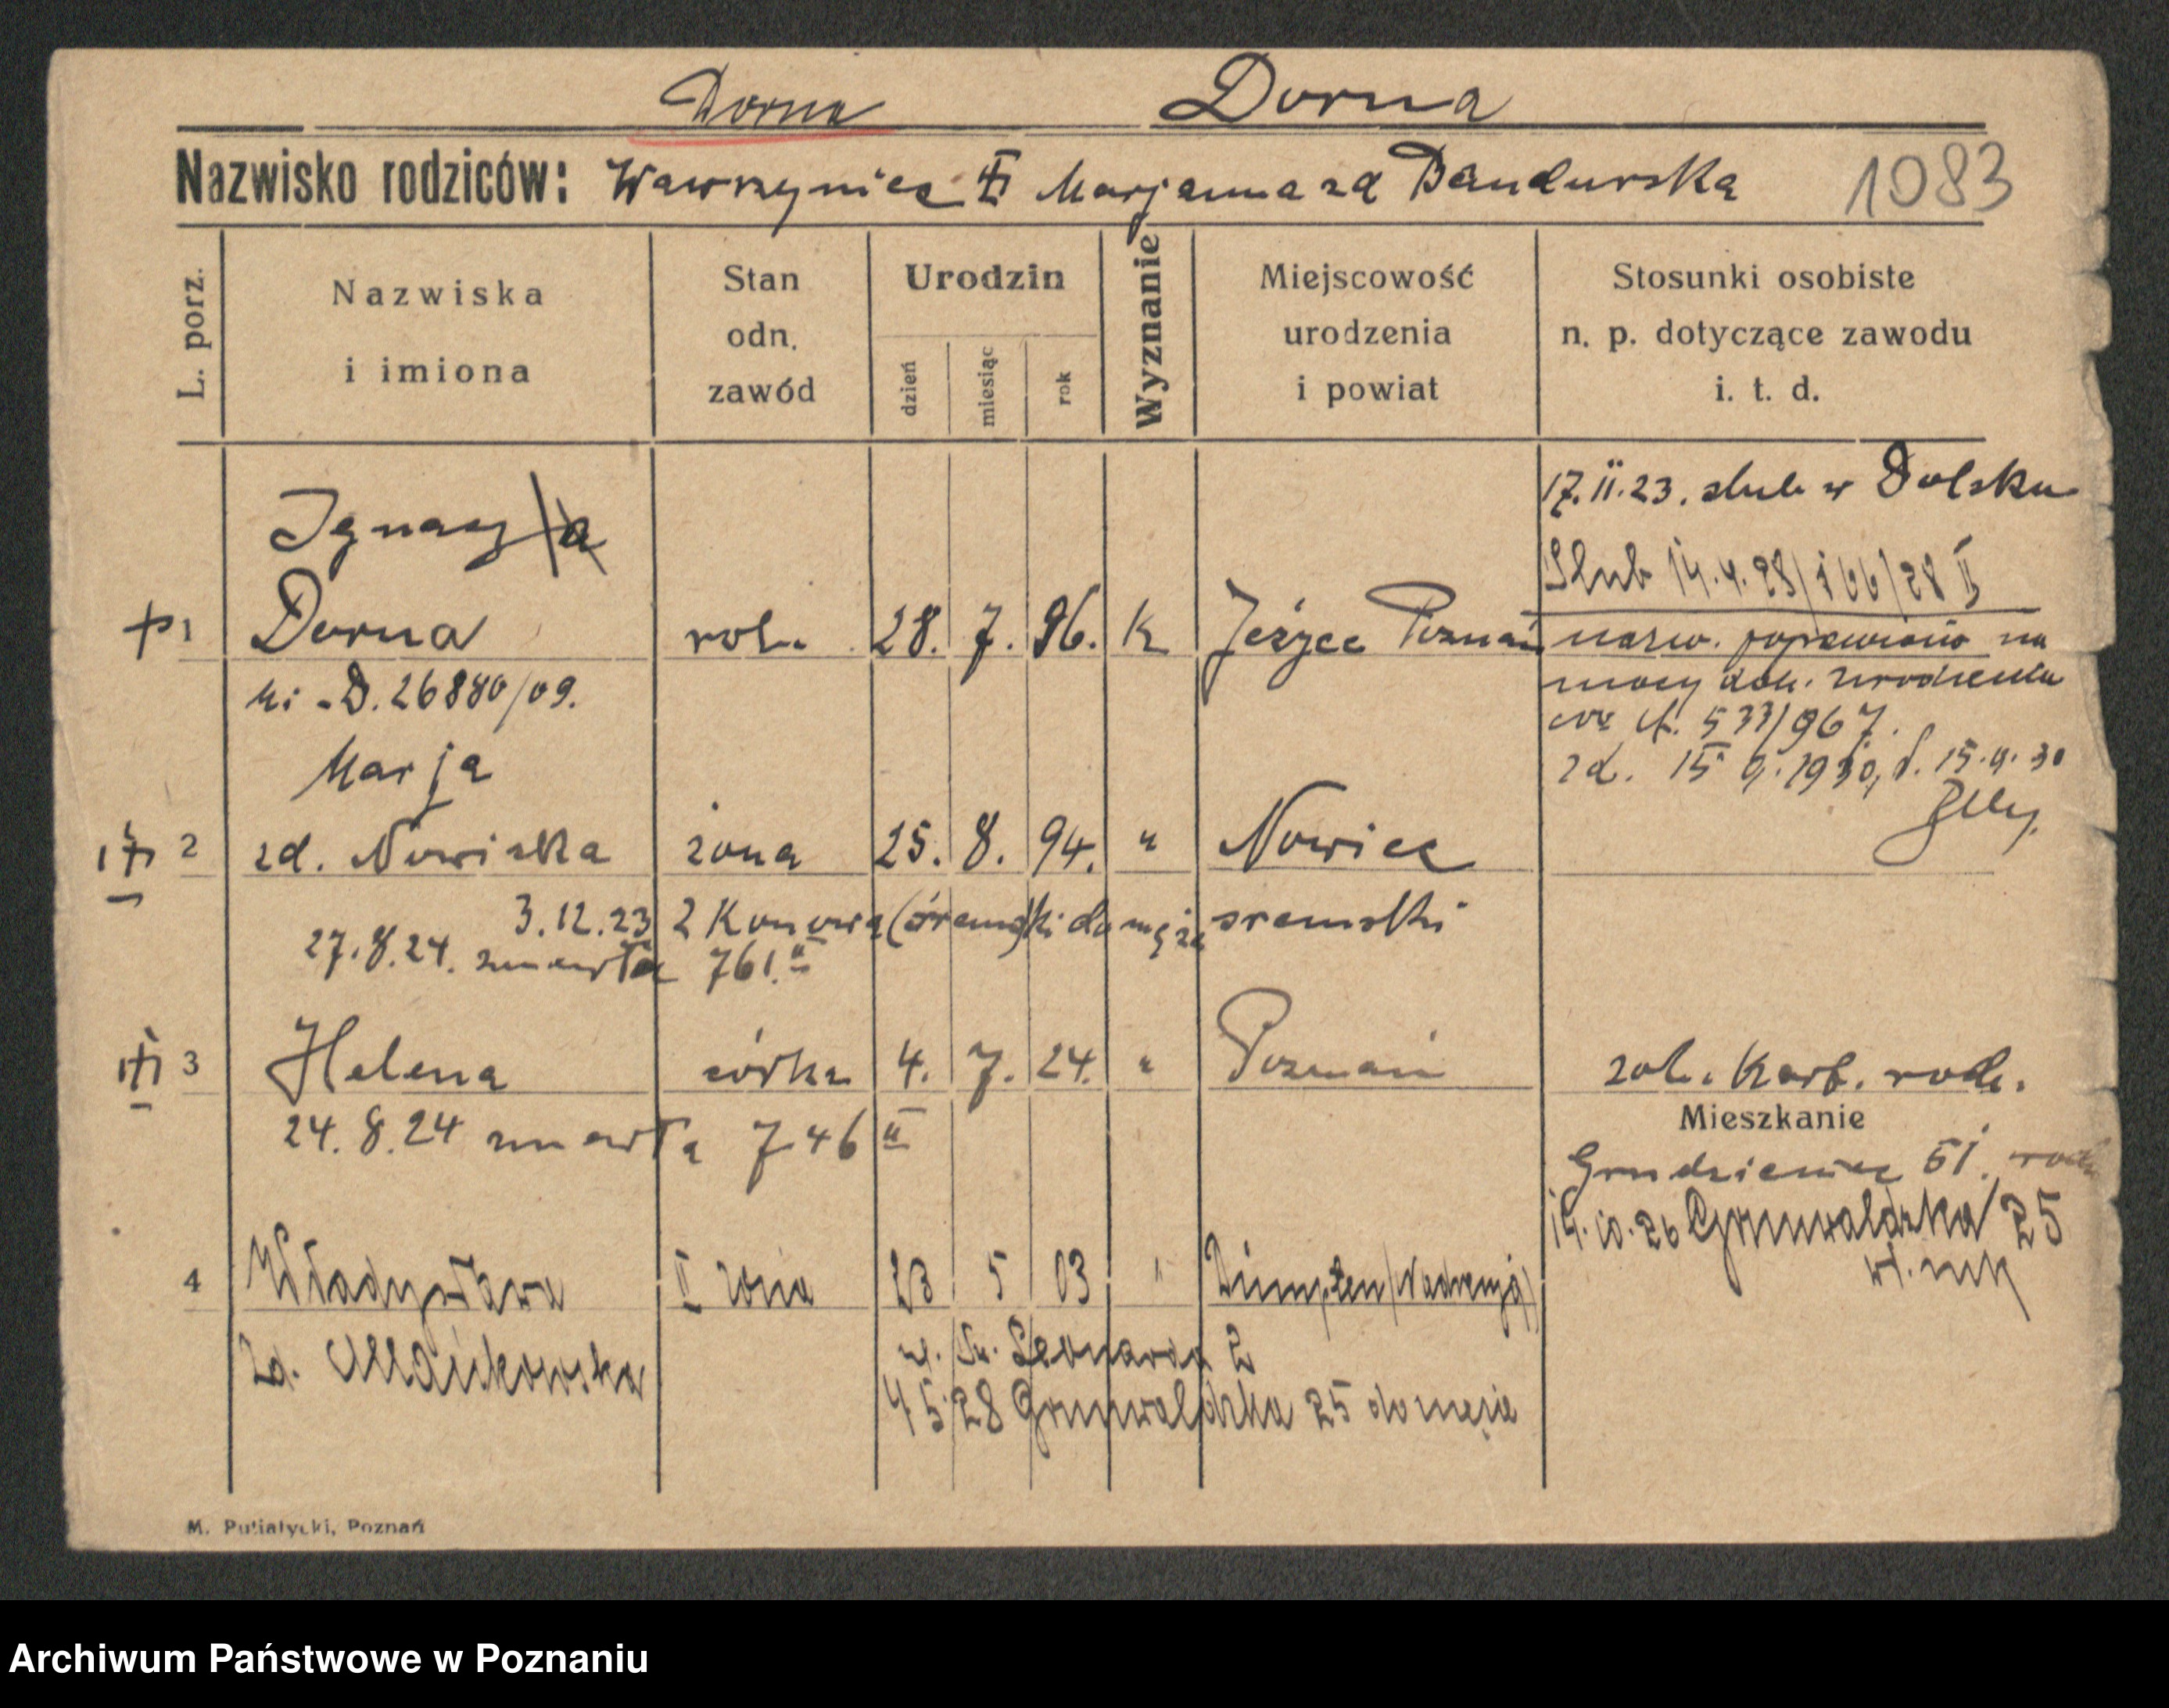 Dorna Dorna
Nazwisko rodziców: Wawrzyniec Marjanna zd Bandurska 1083
L. porz.
Nazwiska
i imiona
Stan
odn.
zawód
Urodzin
dzień
miesiąc
rok
Wyznanie
Miejscowość
urodzenia
i powiat
Stosunki osobiste
n. p. dotyczące zawodu
i. t. d.
17.II.23. slub w Dolsku
Ignacy
Slub 14.4.28/166/28 II
1 Dorna rob. 28. 7. 96. K Jeżyce Poznań
nazw. poprawiono na
D. 26880/09.
mocy dok. urodzenia
533/967.
Marja
zd. 15 9. 1930, 15.9.30
2 zd. Nowicka żona 25. 8. 94. " Nowiec
3.12.23 z Konowa (śremski do męża śremski
27.8.24. zmarła 761.II
3 Helena córka 4. 7. 24. " Poznań
zob. Kart. rodz.
24.8.24 zmarła 746 II
Mieszkanie
Grudzieniec 61.
19.10.26 Grunwaldzka 25
4 Władysława II żona 23 5 03 "
zd. Mańkowska
Leonarda 2
4 5 28 Grunwaldzka 25 do męża
M. Putiatycki, Poznań
Archiwum Państwowe w Poznaniu